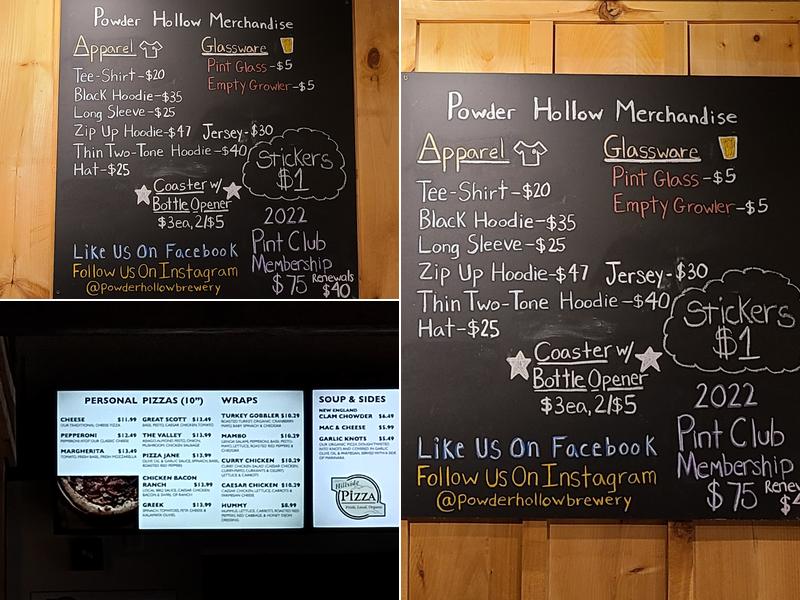 Powder Hollow Merchandise
Apparel Glassware
Tee-Shirt-$20 Pint Glass-$5
Black Hoodie-$35 Empty Growler-$5
Long Sleeve-$25
Zip Up Hoodie-$47 Jersey-$30
Thin Two-Tone Hoodie-$40
Hat-$25
Stickers
$1
Coaster w/
Bottle Opener
$3ea, 2/$5
2022
Pint Club
Membership
$75 Renewals
$40
Like Us On Facebook
Follow Us On Instagram
@powderhollowbrewery
Powder Hollow Merchandise
Apparel Glassware
Tee-Shirt-$20 Pint Glass-$5
Black Hoodie-$35 Empty Growler-$5
Long Sleeve-$25
Zip Up Hoodie-$47 Jersey-$30
Thin Two-Tone Hoodie-$40
Hat-$25
Stickers
$1
Coaster w/
Bottle Opener
$3ea, 2/$5
2022
Pint Club
Membership
$75
Like Us On Facebook
Follow Us On Instagram
@powderhollowbrewery
PERSONAL PIZZAS (10")
CHEESE $11.99
OUR TRADITIONAL CHEESE PIZZA
PEPPERONI $12.49
PEPPERONI ATOP OUR CLASSIC CHEESE
MARGHERITA $13.49
TOMATO, FRESH BASIL, FRESH MOZZARELLA
GREAT SCOTT $13.49
BASIL PESTO, CAESAR CHICKEN, TOMATO
THE VALLEY $13.99
PIZZA JANE $13.99
CHICKEN BACON
RANCH $13.99
GREEK $13.99
SPINACH, TOMATOES, FETA CHEESE &
KALAMATA OLIVES
WRAPS
TURKEY GOBBLER $10.29
MAMBO $10.29
CURRY CHICKEN $10.29
CAESAR CHICKEN $10.29
CAESAR CHICKEN, LETTUCE, CARROTS &
PARMESAN CHEESE
HUMMY $8.99
SOUP & SIDES
NEW ENGLAND
CLAM CHOWDER $6.49
MAC & CHEESE $5.99
GARLIC KNOTS $5.49
Hillside
Pizza
Fresh, Local, Organic